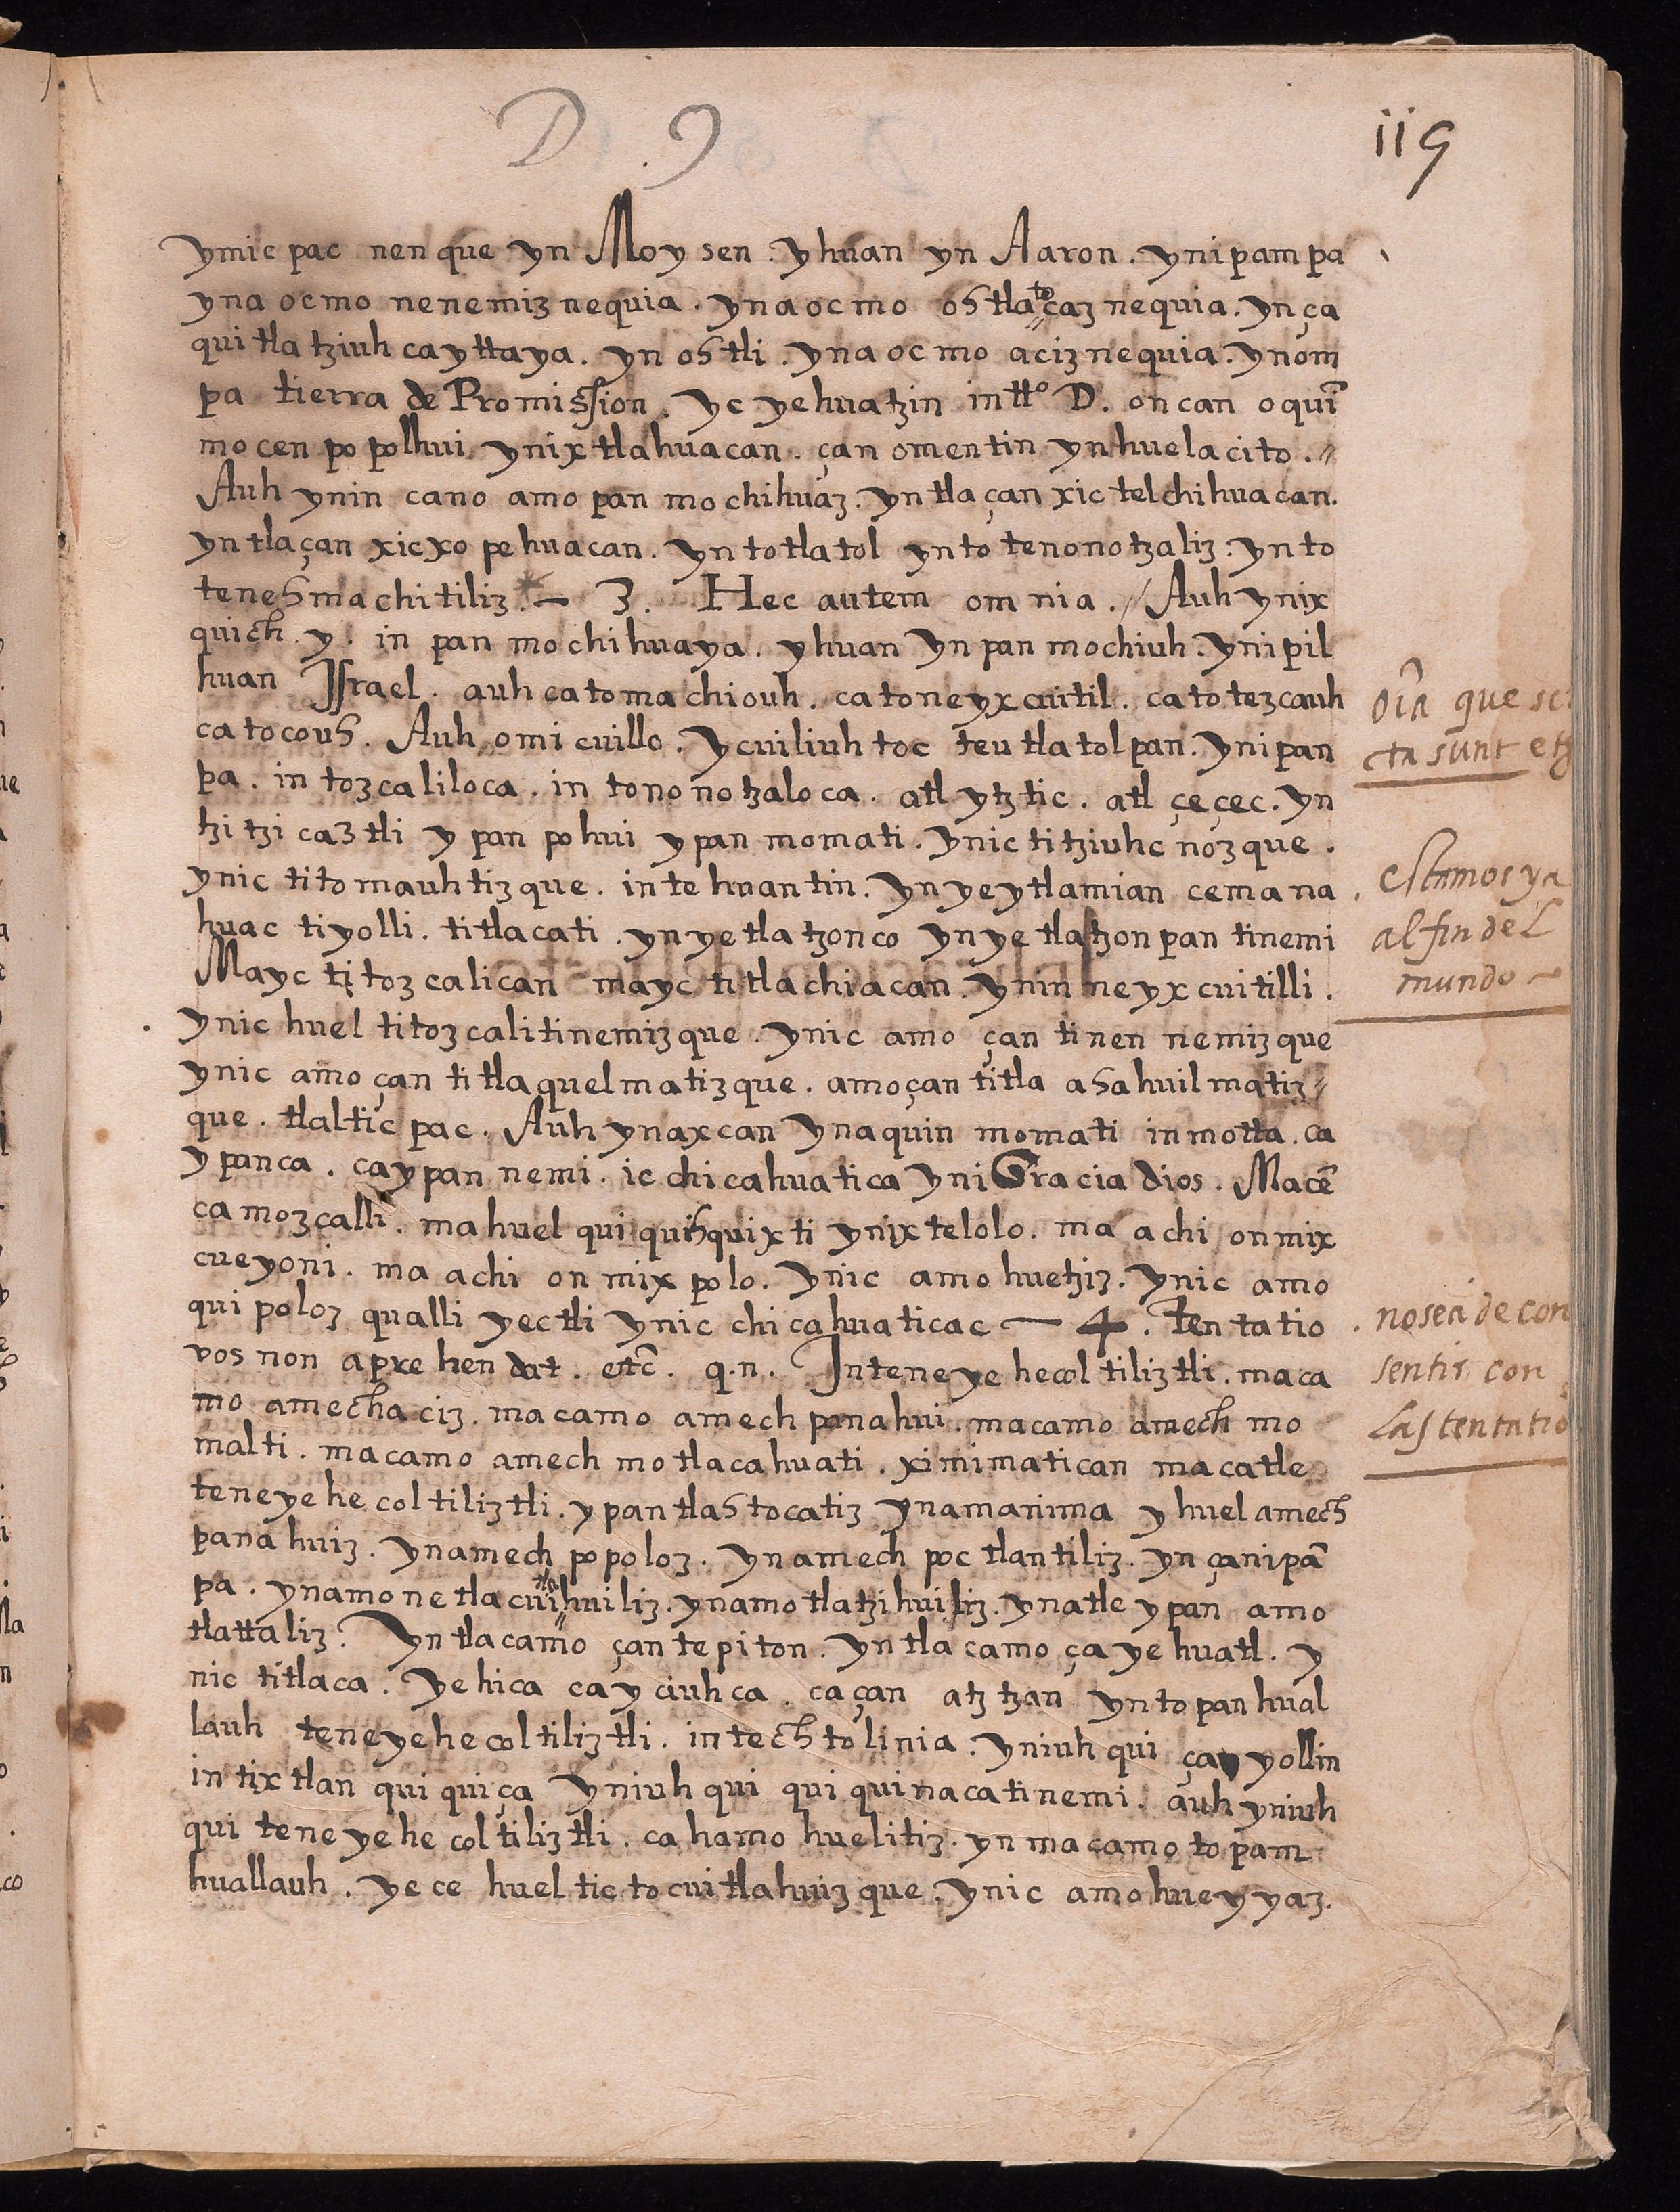 D . 9
119
ymic pac nen que yn Moy sen . yhuan yn Aaron . ynipam pa
yna oc mo nenemiz nequia . yna oc mo ohtlatoçaz nequia . ynça
qui tla tziuh ca yttaya . yn ohtli . yna oc mo aciz nequia . ynom
pa tierra de Promission . yc yehuatzin in tto D. on can o quĩ
mo cen po polhui ynix tlahuacan . çan omentin ynhuel acito .
Auh ynin cano amo pan mo chihuaz . yn tla çan xic telchihuacan .
yn tla çan xicxo pehuacan . yn totlatol ynto tenonotzaliz . ynto
tenehmachitiliz . — 3. Hec autem omnia . // Auh ynix
quich . y . in pan mo chihuaya . yhuan yn pan mochiuh . ynipil
huan Israel . auh ca toma chiouh . ca toneyxcuitil . ca to tezcauh
ca tocouh . Auh omi cuillo . ycuiliuh toc teu tlatol pan . ynipan
pa . in tozcaliloca . in tono notzaloca . atl ytztic . atl çeçec . yn
tzi tzi caztli y pan po hui y pan momati . ynic titziuhc nozque .
ynic tito mauhtizque . in tehuantin . yn ye ytlamian cemana
huac tiyolli . titlacati . yn ye tlatzonco yn ye tlatzon pan tinemi
Mayc titoz calican mayc titlachiacan . ynin neyx cuitilli .
ynic huel titozcalitinemizque . ynic amo çan tinen nemizque
ynic amo çan titlaquelmatizque . amo çan titla ahahuilmatiz
que . tlaltic pac . Auh ynaxcan ynaquin momati inmotta . ca
y panca . ca ypan nemi . ic chicahuatica yni Gracia dios . Macẽ
ca mozcalli . mahuel qui quihquixti ynixtelolo . ma achi onmix
cueyoni . ma achi on mix polo . ynic amo huetziz . ynic amo
qui poloz qualli yectli ynic chicahuaticac — 4. Tentatio
vos non aprehendat . etc̃ . q.n. Inteneyehecoltiliztli . maca
mo amechaciz . macamo amech panahui . macamo amech mo
malti . macamo amech motlacahuati . ximimatican macatle
teneyehecoltiliztli . y pan tlahtocatiz ynamanima y huel amech
panahuiz . ynamech popoloz . ynamech poc tlantiliz . yn çanipã
pa . ynamo netlacuitlahuiliz . ynamo tlatzihuiliz . ynatle y pan amo
tlattaliz . Yn tlacamo çan tepiton . yn tla camo ça ye huatl . y
nic titlaca . Yehica ca yciuhca . ca çan atz tzan yn topan hual
lauh teneyehecoltiliztli . in techtolinia . yniuh qui çayollin
in tixtlan qui quiça yniuh qui qui quinacatinemi . auh yniuh
qui teneyehecoltiliztli . ca hamo huelitiz . yn macamo topam
huallauh . yece huel tictocuitlahuizque . ynic amo huey yaz .
oĩa que scr
cta sunt etz
estamos ya
al fin del
mundo ~
no sea de con
sentir con
las tentatio